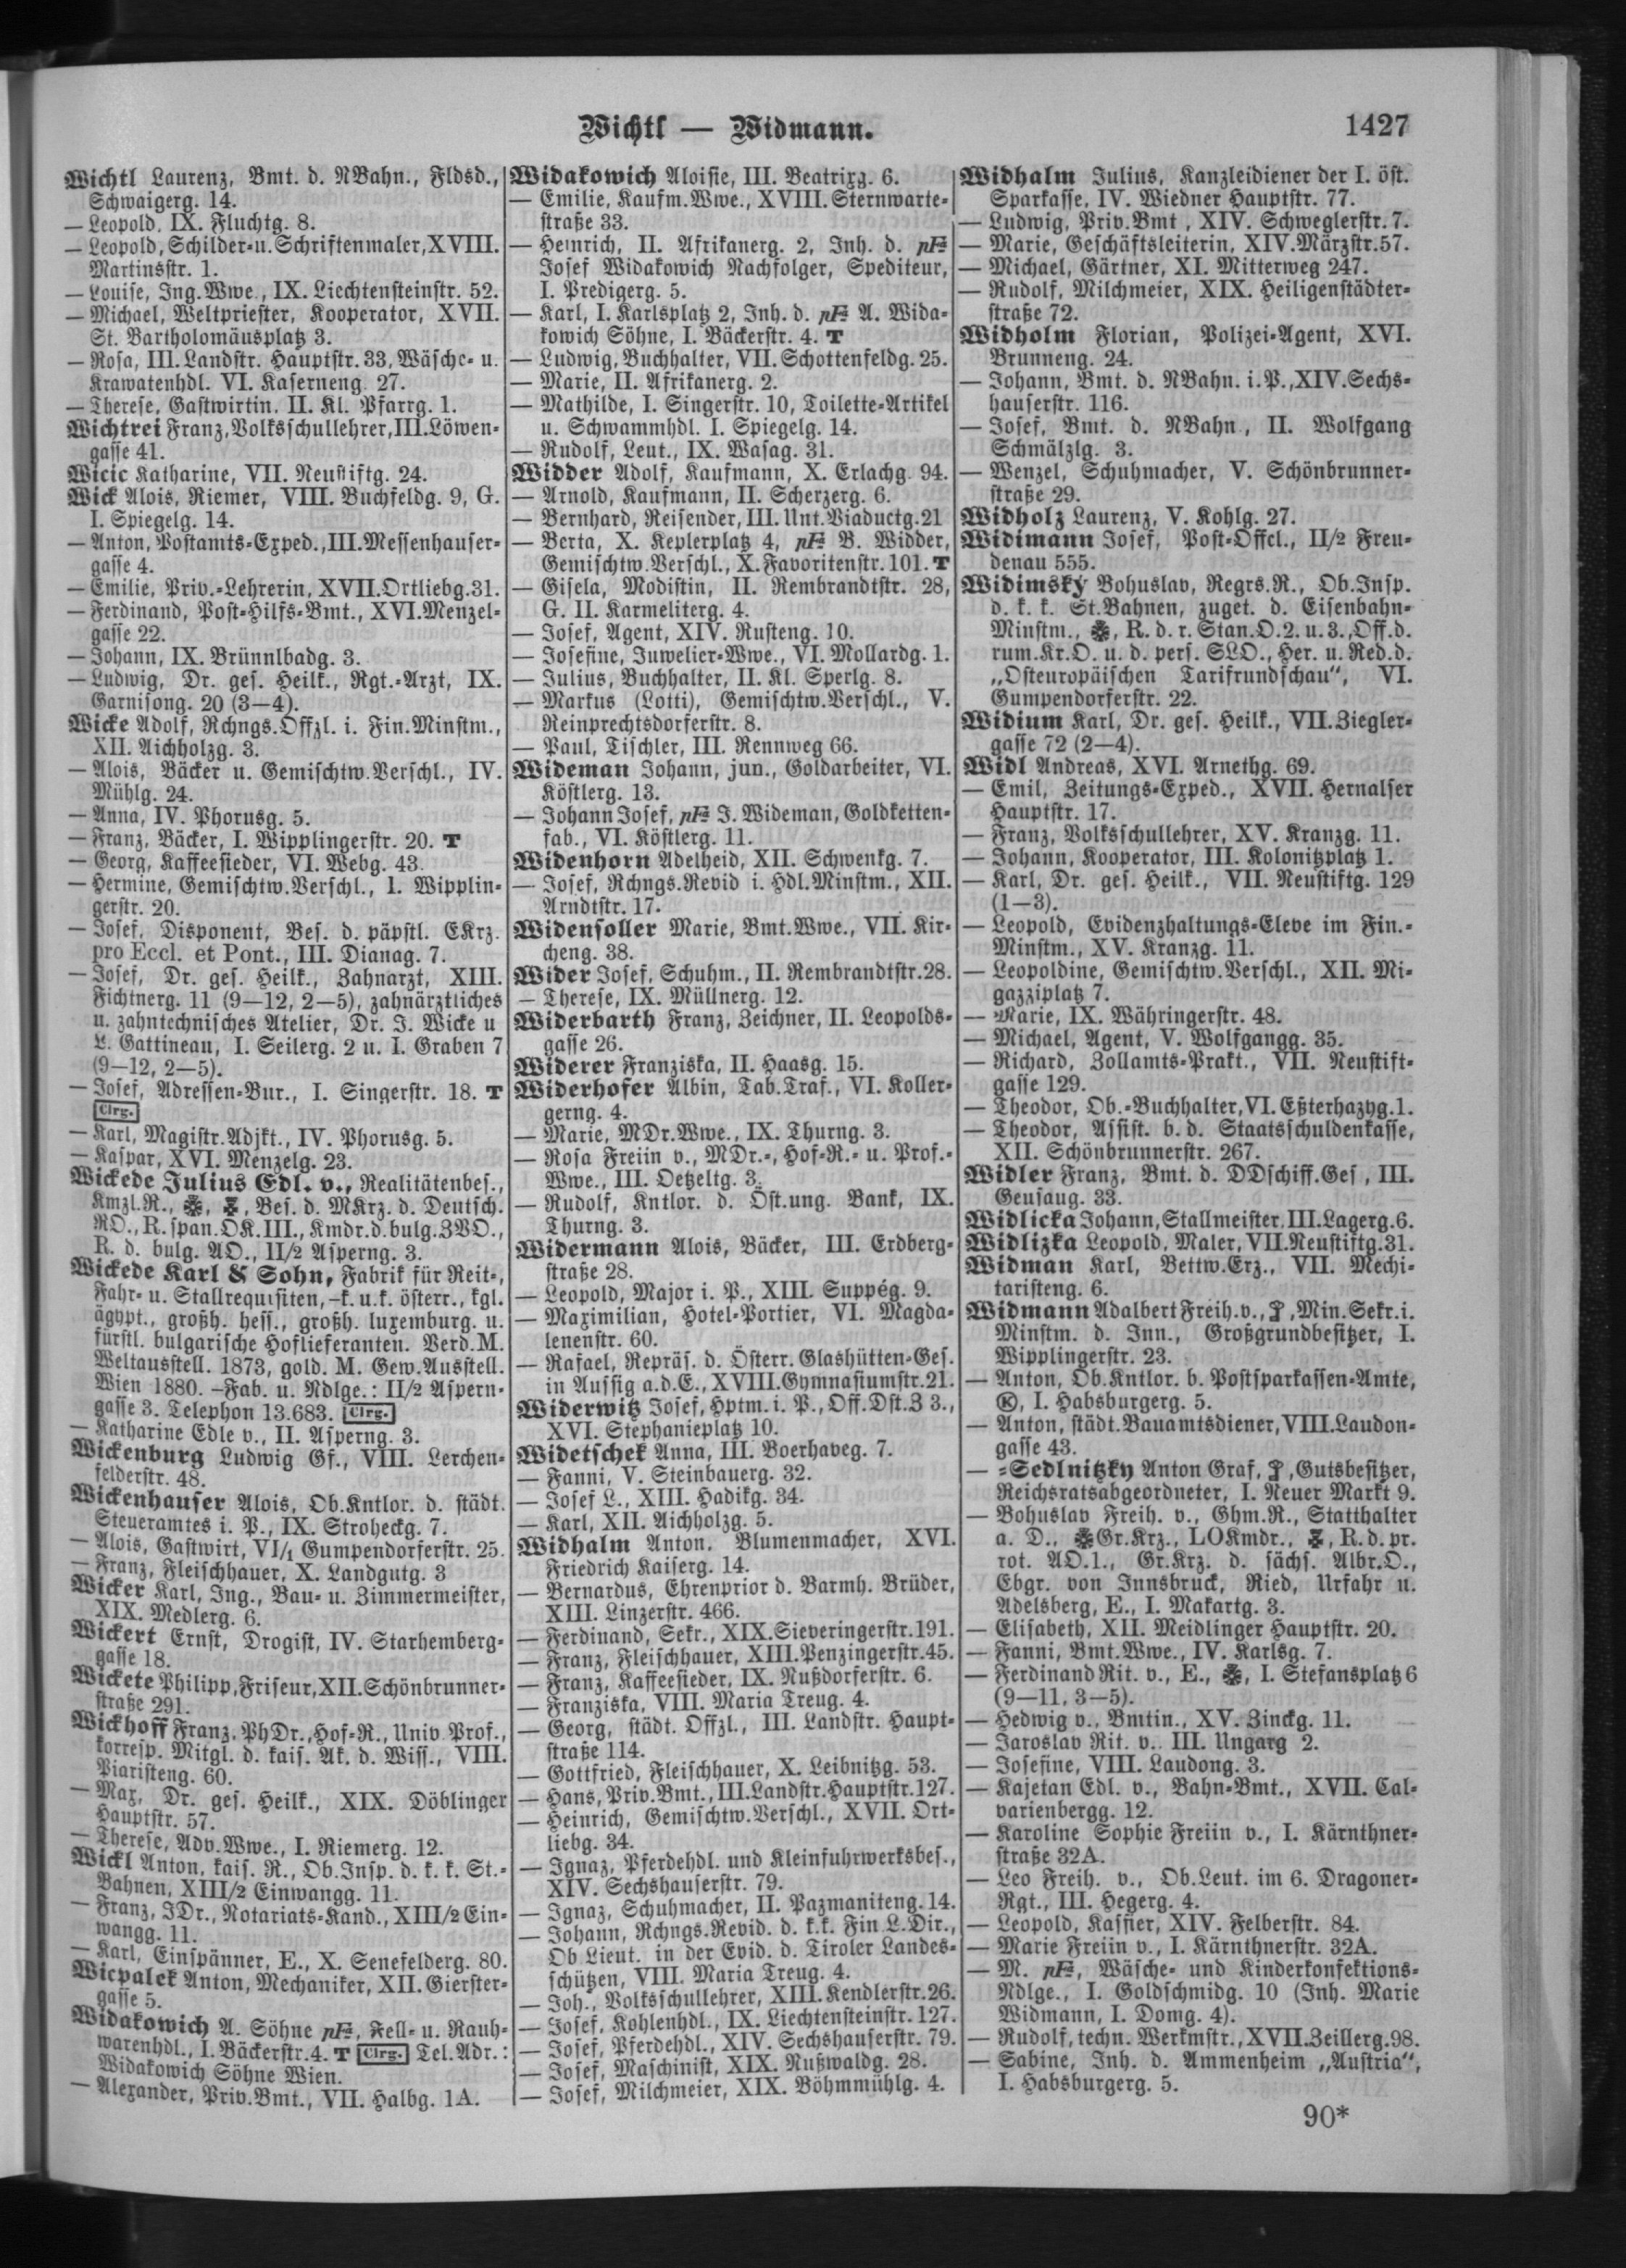 Wichtl — Widmann.
1427
Wichtl Laurenz, Bmt. d. NBahn., Fldsd.,
Schwaigerg. 14.
— Leopold, IX. Fluchtg. 8.
— Leopold, Schilder- u. Schriftenmaler, XVIII.
Martinsstr. 1.
— Louise, Ing.Wwe., IX. Liechtensteinstr. 52.
— Michael, Weltpriester, Kooperator, XVII.
St. Bartholomäusplatz 3.
— Rosa, III. Landstr. Hauptstr. 33, Wäsche- u.
Krawatenhdl. VI. Kaserneng. 27.
— Therese, Gastwirtin, II. Kl. Pfarrg. 1.
Wichtrei Franz, Volksschullehrer, III. Löwen-
gasse 41.
Wicic Katharine, VII. Neustiftg. 24.
Wick Alois, Riemer, VIII. Buchfeldg. 9, G.
I. Spiegelg. 14.
— Anton, Postamts-Exped., III. Messenhauser-
gasse 4.
— Emilie, Priv.-Lehrerin, XVII. Ortliebg. 31.
— Ferdinand, Post-Hilfs-Bmt., XVI. Menzel-
gasse 22.
— Johann, IX. Brünnlbadg. 3.
— Ludwig, Dr. ges. Heilk., Rgt.-Arzt, IX.
Garnisong. 20 (3—4).
Wicke Adolf, Rchngs.Offzl. i. Fin.Minstm.,
XII. Aichholzg. 3.
— Alois, Bäcker u. Gemischtw.Verschl., IV.
Mühlg. 24.
— Anna, IV. Phorusg. 5.
— Franz, Bäcker, I. Wipplingerstr. 20. T
— Georg, Kaffeesieder, VI. Webg. 43.
— Hermine, Gemischtw.Verschl., I. Wipplin-
gerstr. 20.
— Josef, Disponent, Bes. d. päpstl. EKrz.
pro Eccl. et Pont., III. Dianag. 7.
— Josef, Dr. ges. Heilk., Zahnarzt, XIII.
Fichtnerg. 11 (9—12, 2—5), zahnärztliches
u. zahntechnisches Atelier, Dr. J. Wicke u
L. Gattineau, I. Seilerg. 2 u. I. Graben 7
(9—12, 2—5).
— Josef, Adressen-Bur., I. Singerstr. 18. T
Clrg.
— Karl, Magistr.Adjkt., IV. Phorusg. 5.
— Kaspar, XVI. Menzelg. 23.
Wickede Julius Edl. v., Realitätenbes.,
Kmzl.R., Bes. d. MKrz. d. Deutsch.
RO., R. span. OK. III., Kmdr. d. bulg. ZVO.,
R. d. bulg. AO., II/2 Asperng. 3.
Wickede Karl & Sohn, Fabrik für Reit-,
Fahr- u. Stallrequisiten, –k. u. k. österr., kgl.
ägypt., großh. hess., großh. luxemburg. u.
fürstl. bulgarische Hoflieferanten. Verd. M.
Weltausstell. 1873, gold. M. Gew. Ausstell.
Wien 1880. –Fab. u. Ndlge.: II/2 Aspern-
gasse 3. Telephon 13.683. Clrg.
— Katharine Edle v., II. Asperng. 3.
Wickenburg Ludwig Gf., VIII. Lerchen-
felderstr. 48.
Wickenhauser Alois, Ob.Kntlor. d. städt.
Steueramtes i. P., IX. Stroheckg. 7.
— Alois, Gastwirt, VI/1 Gumpendorferstr. 25.
— Franz, Fleischhauer, X. Landgutg. 3
Wicker Karl, Ing., Bau- u. Zimmermeister,
XIX. Medlerg. 6.
Wickert Ernst, Drogist, IV. Starhemberg-
gasse 18.
Wickete Philipp, Friseur, XII. Schönbrunner-
straße 291.
Wickhoff Franz, PhDr., Hof-R., Univ Prof.,
korresp. Mitgl. d. kais. Ak. d. Wiss., VIII.
Piaristeng. 60.
— Max, Dr. ges. Heilk., XIX. Döblinger
Hauptstr. 57.
— Therese, Adv.Wwe., I. Riemerg. 12.
Wickl Anton, kais. R., Ob.Insp. d. k. k. St.-
Bahnen, XIII/2 Einwangg. 11.
— Franz, JDr., Notariats-Kand., XIII/2 Ein-
wangg. 11.
— Karl, Einspänner, E., X. Senefelderg. 80.
Wicpalek Anton, Mechaniker, XII. Gierster-
gasse 5.
Widakowich A. Söhne pF, Fell- u. Rauh-
warenhdl., I. Bäckerstr. 4. T Clrg. Tel. Adr.:
Widakowich Söhne Wien.
— Alexander, Priv.Bmt., VII. Halbg. 1A.
Widakowich Aloisie, III. Beatrixg. 6.
— Emilie, Kaufm.Wwe., XVIII. Sternwarte-
straße 33.
— Heinrich, II. Afrikanerg. 2, Inh. d. pF
Josef Widakowich Nachfolger, Spediteur,
I. Predigerg. 5.
— Karl, I. Karlsplatz 2, Inh. d. pF A. Wida-
kowich Söhne, I. Bäckerstr. 4. T
— Ludwig, Buchhalter, VII. Schottenfeldg. 25.
— Marie, II. Afrikanerg. 2.
— Mathilde, I. Singerstr. 10, Toilette-Artikel
u. Schwammhdl. I. Spiegelg. 14.
— Rudolf, Leut., IX. Wasag. 31.
Widder Adolf, Kaufmann, X. Erlachg. 94.
— Arnold, Kaufmann, II. Scherzerg. 6.
— Bernhard, Reisender, III. Unt. Viaductg. 21
— Berta, X. Keplerplatz 4, pF B. Widder,
Gemischtw.Verschl., X. Favoritenstr. 101. T
— Gisela, Modistin, II. Rembrandtstr. 28,
G. II. Karmeliterg. 4.
— Josef, Agent, XIV. Rusteng. 10.
— Josefine, Juwelier-Wwe., VI. Mollardg. 1.
— Julius, Buchhalter, II. Kl. Sperlg. 8.
— Markus (Lotti), Gemischtw.Verschl., V.
Reinprechtsdorferstr. 8.
— Paul, Tischler, III. Rennweg 66.
Wideman Johann, jun., Goldarbeiter, VI.
Köstlerg. 13.
— Johann Josef, pF J. Wideman, Goldketten-
fab., VI. Köstlerg. 11.
Widenhorn Adelheid, XII. Schwenkg. 7.
— Josef, Rchngs.Revid i. Hdl.Minstm., XII.
Arndtstr. 17.
Widensoller Marie, Bmt.Wwe., VII. Kir-
cheng. 38.
Wider Josef, Schuhm., II. Rembrandtstr. 28.
— Therese, IX. Müllnerg. 12.
Widerbarth Franz, Zeichner, II. Leopolds-
gasse 26.
Widerer Franziska, II. Haasg. 15.
Widerhofer Albin, Tab.Traf., VI. Koller-
gerng. 4.
— Marie, MDr.Wwe., IX. Thurng. 3.
— Rosa Freiin v., MDr.-, Hof-R.- u. Prof.-
Wwe., III. Oetzeltg. 3.
— Rudolf, Kntlor. d. Öst.ung. Bank, IX.
Thurng. 3.
Widermann Alois, Bäcker, III. Erdberg-
straße 28.
— Leopold, Major i. P., XIII. Suppég. 9.
— Maximilian, Hotel-Portier, VI. Magda-
lenenstr. 60.
— Rafael, Repräs. d. Österr. Glashütten-Ges.
in Aussig a. d. E., XVIII. Gymnasiumstr. 21.
Widerwitz Josef, Hptm. i. P., Off. Dst. Z 3.,
XVI. Stephanieplatz 10.
Widetschek Anna, III. Boerhaveg. 7.
— Fanni, V. Steinbauerg. 32.
— Josef L., XIII. Hadikg. 34.
— Karl, XII. Aichholzg. 5.
Widhalm Anton, Blumenmacher, XVI.
Friedrich Kaiserg. 14.
— Bernardus, Ehrenprior d. Barmh. Brüder,
XIII. Linzerstr. 466.
— Ferdinand, Sekr., XIX. Sieveringerstr. 191.
— Franz, Fleischhauer, XIII. Penzingerstr. 45.
— Franz, Kaffeesieder, IX. Nußdorferstr. 6.
— Franziska, VIII. Maria Treug. 4.
— Georg, städt. Offzl., III. Landstr. Haupt-
straße 114.
— Gottfried, Fleischhauer, X. Leibnitzg. 53.
— Hans, Priv.Bmt., III. Landstr. Hauptstr. 127.
— Heinrich, Gemischtw.Verschl., XVII. Ort-
liebg. 34.
— Ignaz, Pferdehdl. und Kleinfuhrwerksbes.,
XIV. Sechshauserstr. 79.
— Ignaz, Schuhmacher, II. Pazmaniteng. 14.
— Johann, Rchngs.Revid. d. k.k. Fin L.Dir.,
Ob Lieut. in der Evid. d. Tiroler Landes-
schützen, VIII. Maria Treug. 4.
— Joh., Volksschullehrer, XIII. Kendlerstr. 26.
— Josef, Kohlenhdl., IX. Liechtensteinstr. 127.
— Josef, Pferdehdl., XIV. Sechshauserstr. 79.
— Josef, Maschinist, XIX. Nußwaldg. 28.
— Josef, Milchmeier, XIX. Böhmmühlg. 4.
Widhalm Julius, Kanzleidiener der I. öst.
Sparkasse, IV. Wiedner Hauptstr. 77.
— Ludwig, Priv.Bmt , XIV. Schweglerstr. 7.
— Marie, Geschäftsleiterin, XIV. Märzstr. 57.
— Michael, Gärtner, XI. Mitterweg 247.
— Rudolf, Milchmeier, XIX. Heiligenstädter-
straße 72.
Widholm Florian, Polizei-Agent, XVI.
Brunneng. 24.
— Johann, Bmt. d. NBahn. i. P., XIV. Sechs-
hauserstr. 116.
— Josef, Bmt. d. NBahn., II. Wolfgang
Schmälzlg. 3.
— Wenzel, Schuhmacher, V. Schönbrunner-
straße 29.
Widholz Laurenz, V. Kohlg. 27.
Widimann Josef, Post-Offcl., II/2 Freu-
denau 555.
Widimský Bohuslav, Regrs.R., Ob.Insp.
d. k. k. St.Bahnen, zuget. d. Eisenbahn-
Minstm., R. d. r. Stan.O. 2. u. 3., Off. d.
rum. Kr.O. u. d. pers. SLO., Her. u. Red. d.
„Osteuropäischen Tarifrundschau“, VI.
Gumpendorferstr. 22.
Widium Karl, Dr. ges. Heilk., VII. Ziegler-
gasse 72 (2—4).
Widl Andreas, XVI. Arnethg. 69.
— Emil, Zeitungs-Exped., XVII. Hernalser
Hauptstr. 17.
— Franz, Volksschullehrer, XV. Kranzg. 11.
— Johann, Kooperator, III. Kolonitzplatz 1.
— Karl, Dr. ges. Heilk., VII. Neustiftg. 129
(1—3).
— Leopold, Evidenzhaltungs-Eleve im Fin.-
Minstm., XV. Kranzg. 11.
— Leopoldine, Gemischtw.Verschl., XII. Mi-
gazziplatz 7.
— Marie, IX. Währingerstr. 48.
— Michael, Agent, V. Wolfgangg. 35.
— Richard, Zollamts-Prakt., VII. Neustift-
gasse 129.
— Theodor, Ob.-Buchhalter, VI. Eßterhazyg. 1.
— Theodor, Assist. b. d. Staatsschuldenkasse,
XII. Schönbrunnerstr. 267.
Widler Franz, Bmt. d. DDschiff.Ges , III.
Geusaug. 33.
Widlicka Johann, Stallmeister, III. Lagerg. 6.
Widlizka Leopold, Maler, VII. Neustiftg. 31.
Widman Karl, Bettw.Erz., VII. Mechi-
taristeng. 6.
Widmann Adalbert Freih. v., Min.Sekr. i.
Minstm. d. Inn., Großgrundbesitzer, I.
Wipplingerstr. 23.
— Anton, Ob.Kntlor. b. Postsparkassen-Amte,
Ⓚ, I. Habsburgerg. 5.
— Anton, städt. Bauamtsdiener, VIII. Laudon-
gasse 43.
— -Sedlnitzky Anton Graf, Gutsbesitzer,
Reichsratsabgeordneter, I. Neuer Markt 9.
— Bohuslav Freih. v., Ghm.R., Statthalter
a. D., Gr.Krz., LOKmdr., R. d. pr.
rot. AO. 1., Gr.Krz. d. sächs. Albr.O.,
Ebgr. von Innsbruck, Ried, Urfahr u.
Adelsberg, E., I. Makartg. 3.
— Elisabeth, XII. Meidlinger Hauptstr. 20.
— Fanni, Bmt.Wwe., IV. Karlsg. 7.
— Ferdinand Rit. v., E., I. Stefansplatz 6
(9—11, 3—5).
— Hedwig v., Bmtin., XV. Zinckg. 11.
— Jaroslav Rit. v., III. Ungarg 2.
— Josefine, VIII. Laudong. 3.
— Kajetan Edl. v., Bahn-Bmt., XVII. Cal-
varienbergg. 12.
— Karoline Sophie Freiin v., I. Kärnthner-
straße 32A.
— Leo Freih. v., Ob.Leut. im 6. Dragoner-
Rgt., III. Hegerg. 4.
— Leopold, Kassier, XIV. Felberstr. 84.
— Marie Freiin v., I. Kärnthnerstr. 32A.
— M. pF, Wäsche- und Kinderkonfektions-
Ndlge., I. Goldschmidg. 10 (Inh. Marie
Widmann, I. Domg. 4).
— Rudolf, techn. Werkmstr., XVII. Zeillerg. 98.
— Sabine, Inh. d. Ammenheim „Austria“,
I. Habsburgerg. 5.
90*